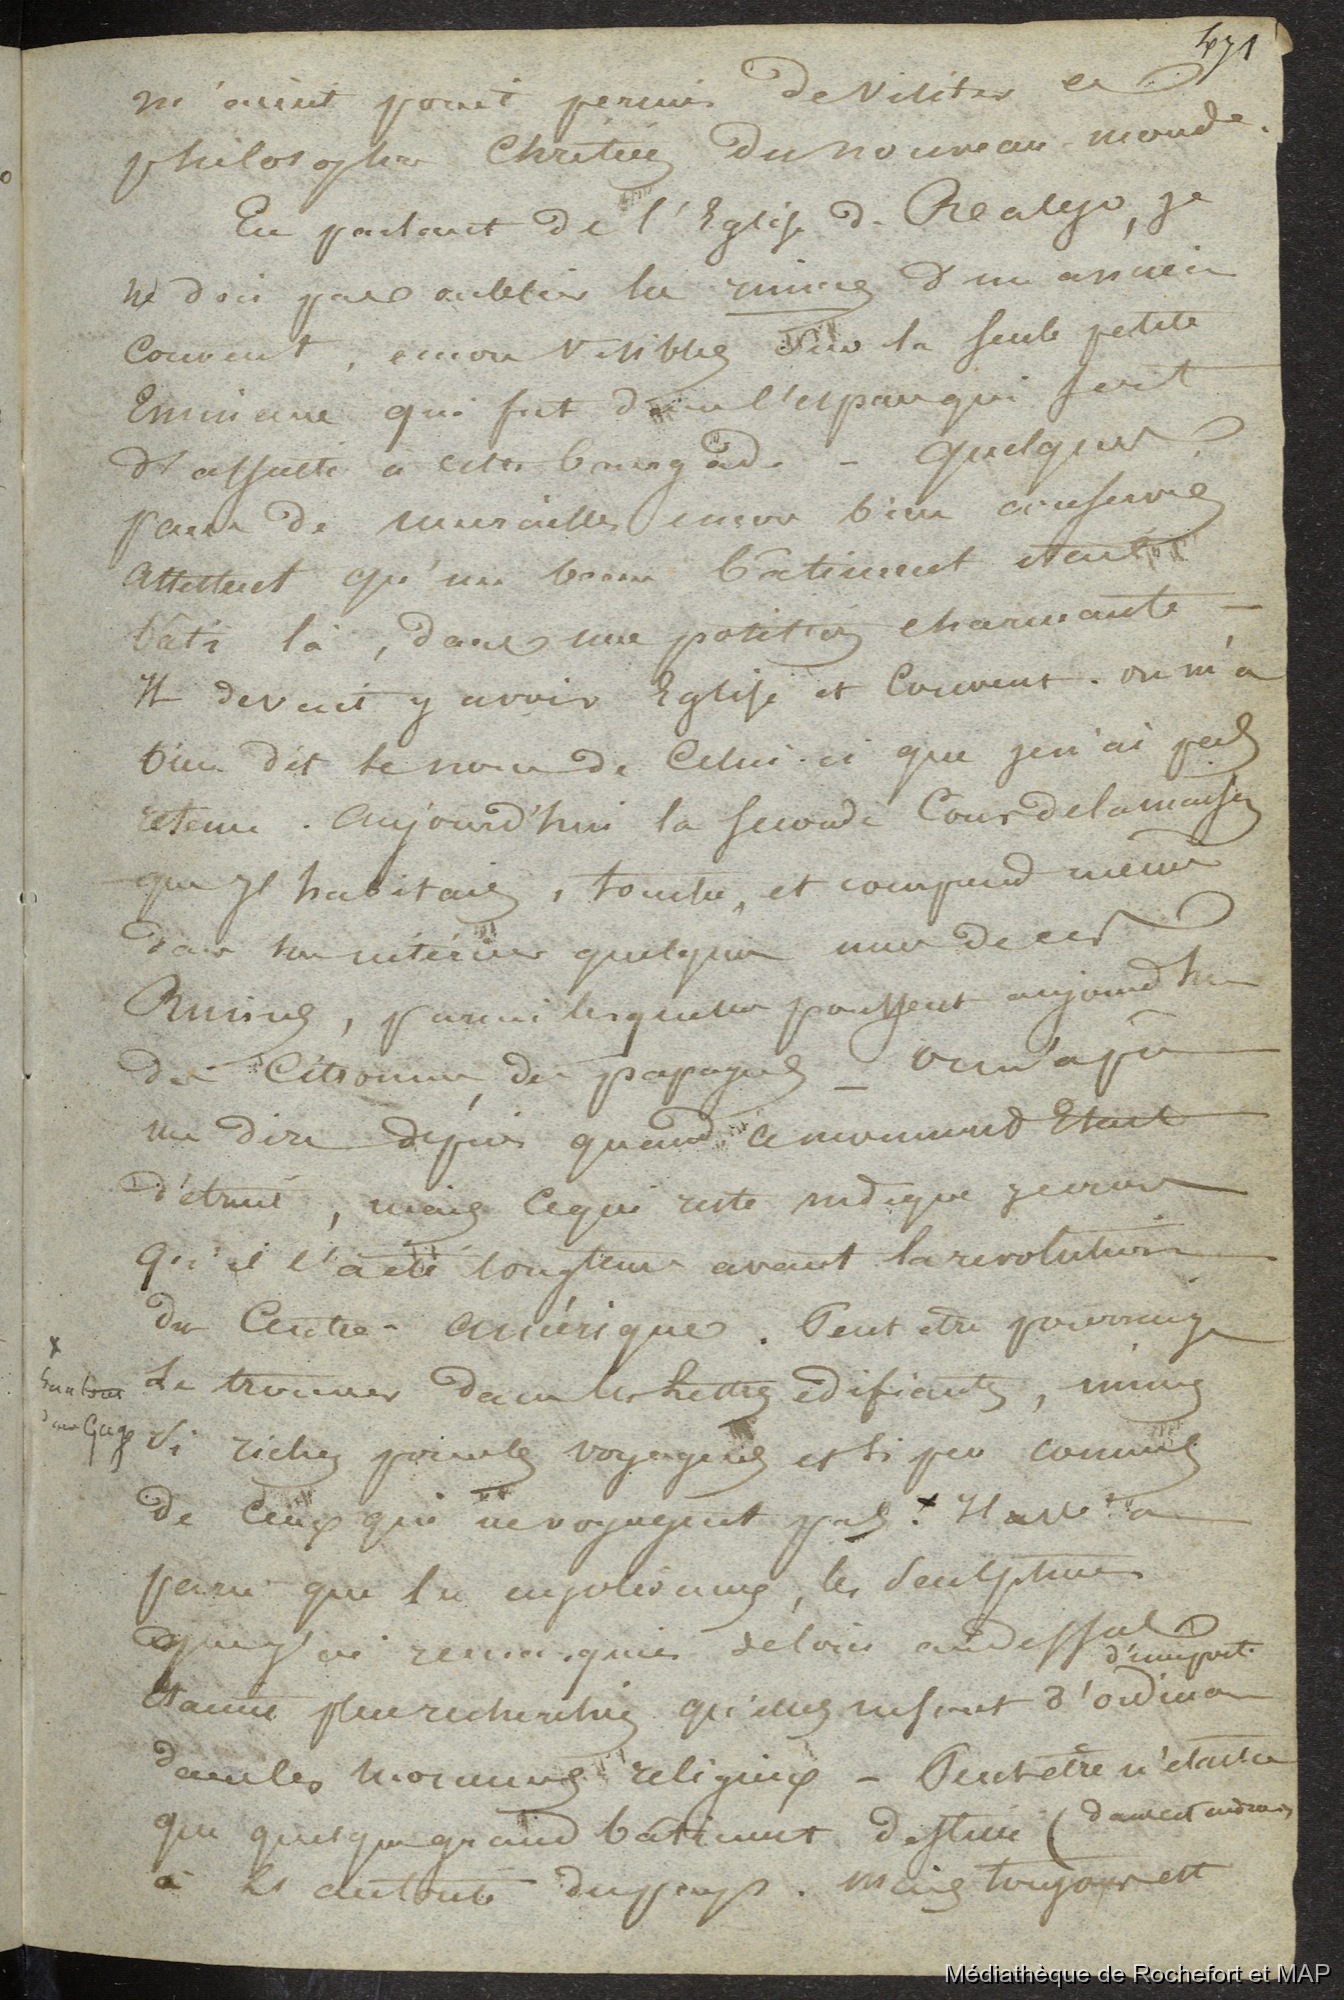 471
m'aient point permis de visiter ce
philosophe Chrétien du nouveau monde.
En parlant de l'Eglise de Realejo, je
ne dois pas oublier les ruines d'un ancien
Couvent, encore visibles sur la seule petite
Eminence qui fut dans l'espace qui sert
d'assiette à cette bourgade - quelques
pans de murailles encore bien conservés
attestent qu'un beau bâtiment était
bâti là, dans une position charmante -
Il devait y avoir Eglise et Couvent. on m'a
bien dit le nom de Celui-ci que je n'ai pas
retenu. Aujourd'hui la seconde Cour de la maison
que j'habitais, touche, et comprend même
dans son intérieur quelques uns de ces
Ruines, parmi lesquelles poussent aujourd'hui
des Citronniers, des papayers - on n'a pu
me dire depuis quand ce monument Etait
détruit, mais ce qui reste indique je crois
qu'il l'a été longtems avant la revolution
du Centre-Amérique. Peut etre pourrai-je
le trouver dans les lettres édifiantes, mines
x
dans Gage
si riches pour les voyageurs et si peu connues
de Ceux qui ne voyagent pas. x Il m'a
paru que les enjolivemens, les sculptures
que j'ai remarquées de loin au dessus
d'une port.
étaient plus recherchées qu'elles ne sont d'ordinaire
dans les monumens religieux - Peut être n'était-ce
que quelque grand bâtiment destiné (dans cet endroit
à les autorités du pays. Mais toujours est